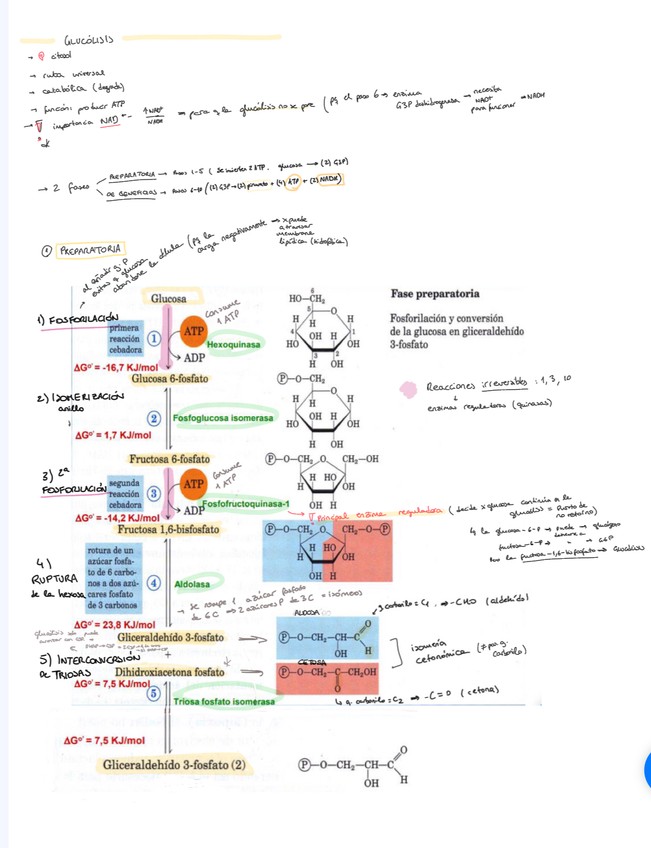 GLUCÓLISIS
→ citosol
→ ruta universal
→ catabólica (degrada)
→ función: producir ATP
→ importancia NAD⁺ → para q la glucólisis no se pare (pq el paso 6 → enzima G3P deshidrogenasa → necesita NAD⁺ para funcionar → NADH
→ 2 fases
PREPARATORIA → Pasos 1-5 (se invierten 2 ATP. glucosa → (2) G3P)
DE BENEFICIOS → Pasos 6-10 ((2) G3P → (2) piruvato + (4) ATP + (2) NADH)
① PREPARATORIA
al añadir q. P
evitas q glucosa
abandone la célula (pq la
carga negativamente → x puede
atravesar
membrana
lipídica (hidrofóbica)
Glucosa
1) FOSFORILACIÓN
primera
reacción
cebadora
1
ATP
ADP
consume
1 ATP
Hexoquinasa
ΔG°' = -16,7 KJ/mol
HO—CH₂
Fase preparatoria
Fosforilación y conversión
de la glucosa en gliceraldehído
3-fosfato
Glucosa 6-fosfato
Reacciones irreversibles: 1, 3, 10
enzimas reguladoras (quinasas)
2) ISOMERIZACIÓN
anillo
2
Fosfoglucosa isomerasa
ΔG°' = 1,7 KJ/mol
P—O—CH₂
Fructosa 6-fosfato
3) 2ª
FOSFORILACIÓN
segunda
reacción
cebadora
3
ATP
ADP
consume
1 ATP
Fosfofructoquinasa-1
ΔG°' = -14,2 KJ/mol
P—O—CH₂ O CH₂—OH
Principal enzima reguladora (decide x glucosa continúa a la glucólisis = Punto de no retorno)
Fructosa 1,6-bisfosfato
P—O—CH₂ O CH₂—O—P
4)
RUPTURA
de la hexosa
rotura de un
azúcar fosfa-
to de 6 carbo-
nos a dos azú-
cares fosfato
de 3 carbonos
4
Aldolasa
→ se rompe 1 azúcar fosfato
de 6C → 2 azúcares P de 3C = isómeros
ΔG°' = 23,8 KJ/mol
Gliceraldehído 3-fosfato
ALDOSA
P—O—CH₂—CH—C
O
H
OH
carbonilo = C₁ → -CHO (aldehído)
5) INTERCONVERSIÓN
DE TRIOSAS
+
Dihidroxiacetona fosfato
CETOSA
P—O—CH₂—C—CH₂OH
O
isomería
cetónica (≠ po. g.
carbonilo)
g. carbonilo = C₂ → -C=O (cetona)
ΔG°' = 7,5 KJ/mol
5
Triosa fosfato isomerasa
ΔG°' = 7,5 KJ/mol
Gliceraldehído 3-fosfato (2)
P—O—CH₂—CH—C
O
H
OH